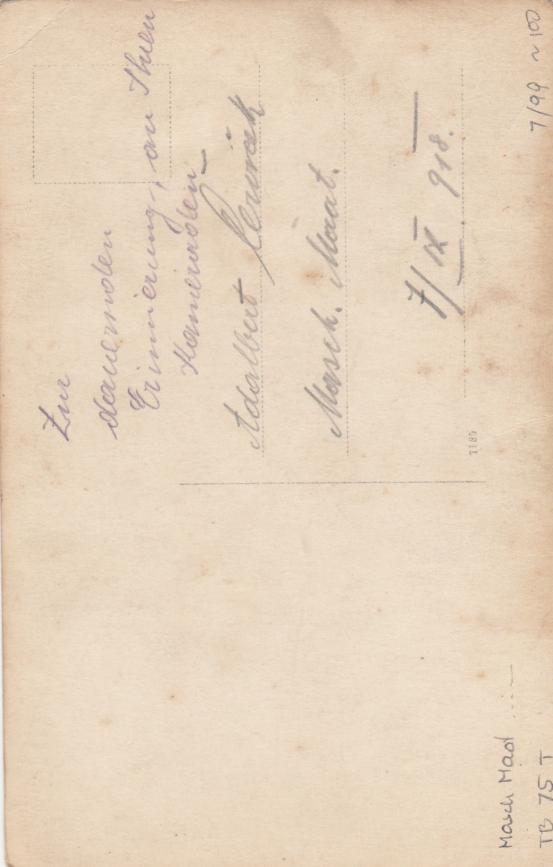 Zur
dauernden
Erinnerung, an Ihren
Kameraden
Adalbert
Masch. Maat.
7/IX 918.
7189
7/99 ~100
Masch Maat
TB 75 T